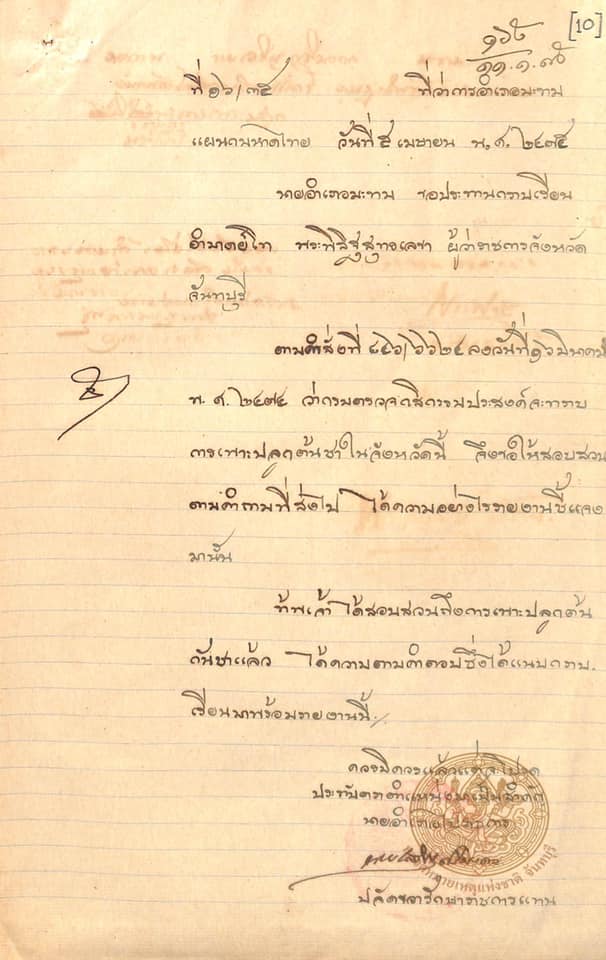 [10]
ที่ ๑๖/๓๕ ที่ว่าการอำเภอมะขาม
แผนกมหาดไทย วันที่ ๕ เมษายน พ.ศ. ๒๔๗๕
นายอำเภอมะขาม ขอประทานกราบเรียน
อำมาตย์โท พระพิสิฐสุทธเลขา ผู้ว่าราชการจังหวัด
จันทบุรี
ตามคำสั่งที่ ลงวันที่ ๑๖ มีนาคม
พ.ศ. ๒๔๗๔ ว่ากรมตรวจกสิกรรมประสงค์จะทราบ
การเพาะปลูกต้นชาในจังหวัดนี้ จึงขอให้สอบสวน
ตามคำถามที่ส่งไป ได้ความอย่างไรรายงานชี้แจง
มานั้น
ข้าพเจ้าได้สอบสวนถึงการเพาะปลูกต้น
กันชาแล้ว ได้ความตามคำตอบซึ่งได้แนบกราบ
เรียนมาพร้อมรายงานนี้
ควรมิควรแล้วแต่จะโปรด
ประทับตราตำแหน่งมาเป็นสำคัญ
นายอำเภอไปราชการ
ปลัดขวารักษาราชการแทน
หอจดหมายเหตุแห่งชาติ จันทบุรี